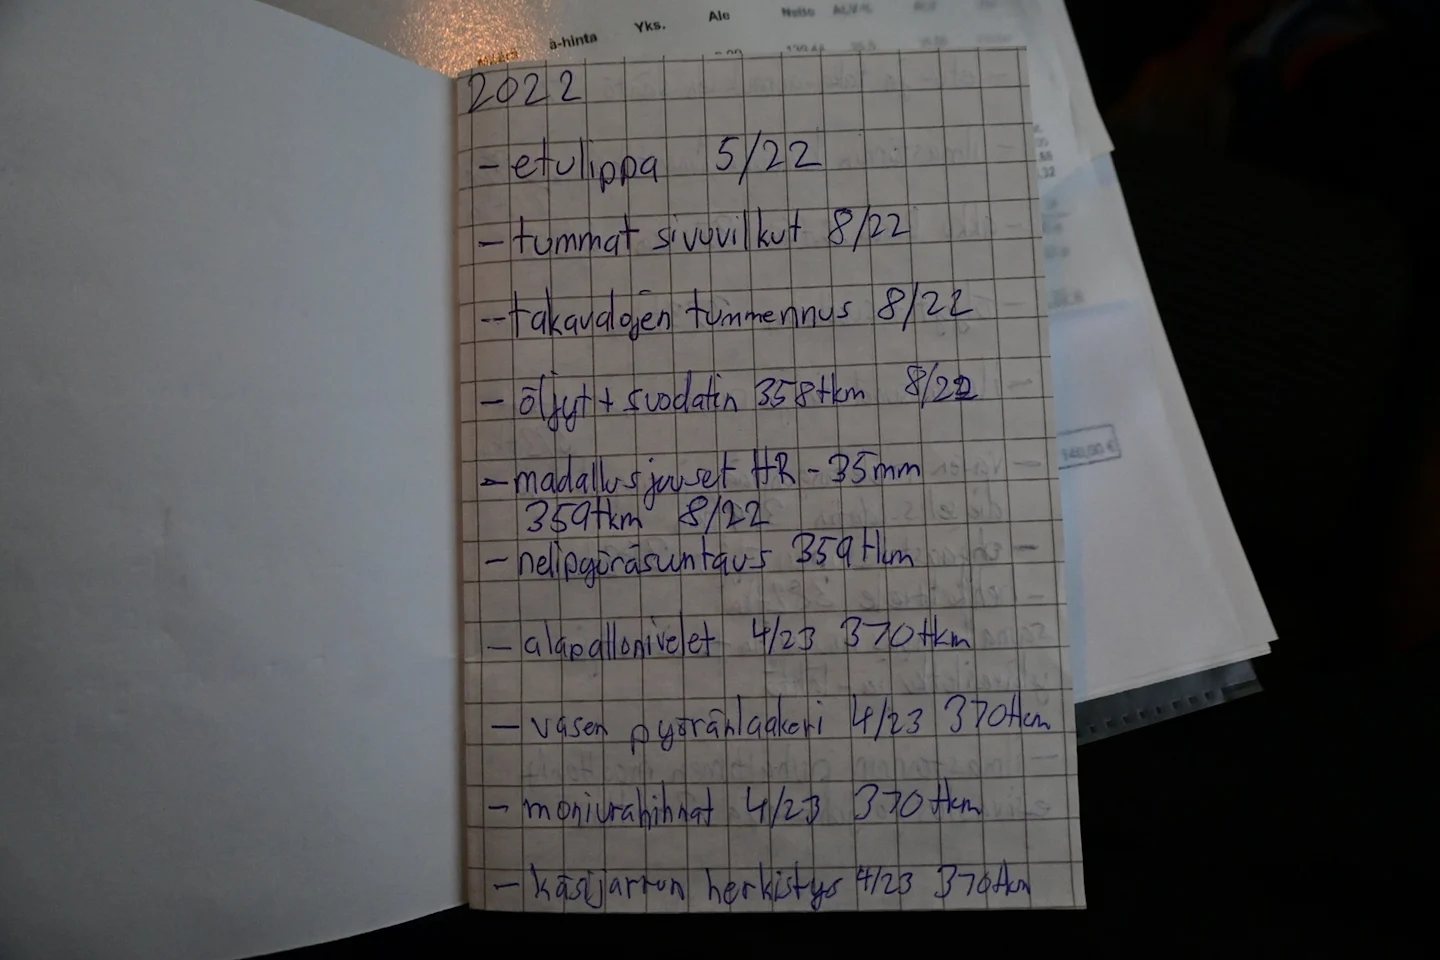 Yks.
Ale
Netto
à-hinta
2022
- etulippa 5/22
- tummat sivuvilkut 8/22
- takavalojen tummennus 8/22
- öljyt + suodatin 358tkm 8/22
- madallusjouset HR - 35mm
359tkm 8/22
- nelipyöräsuntaus 359tkm
- alapallonivelet 4/23 370tkm
- vasen pyöränlaakeri 4/23 370tkm
- moniurahihnat 4/23 370tkm
- käsijarrun herkistys 4/23 370tkm